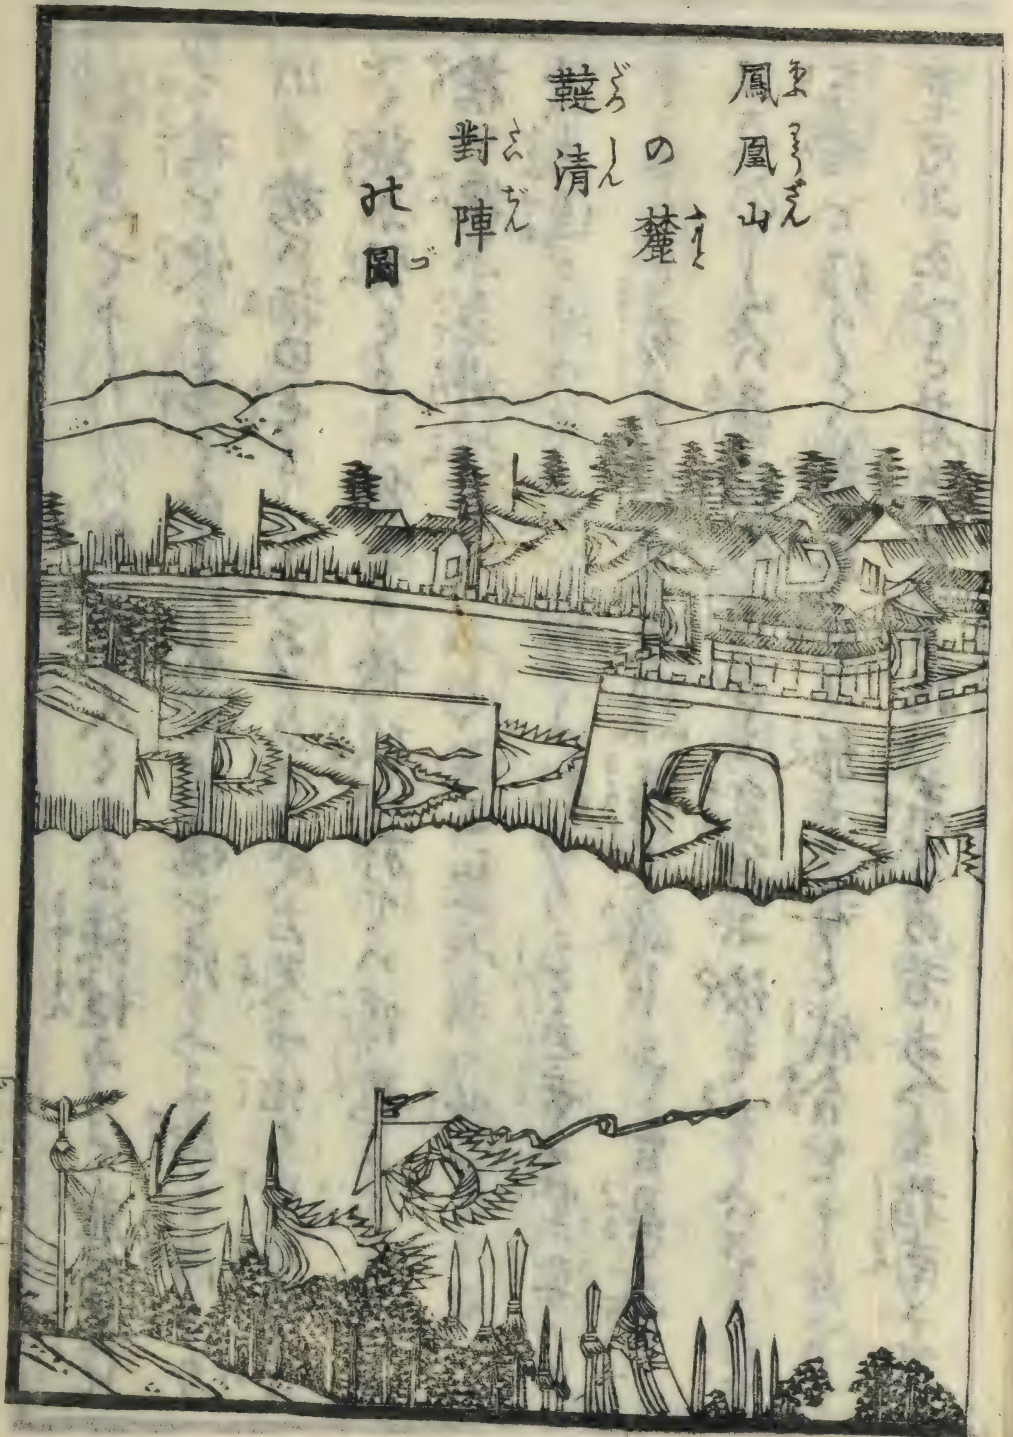 鳳凰山
の麓
韃清
對陣
の圖